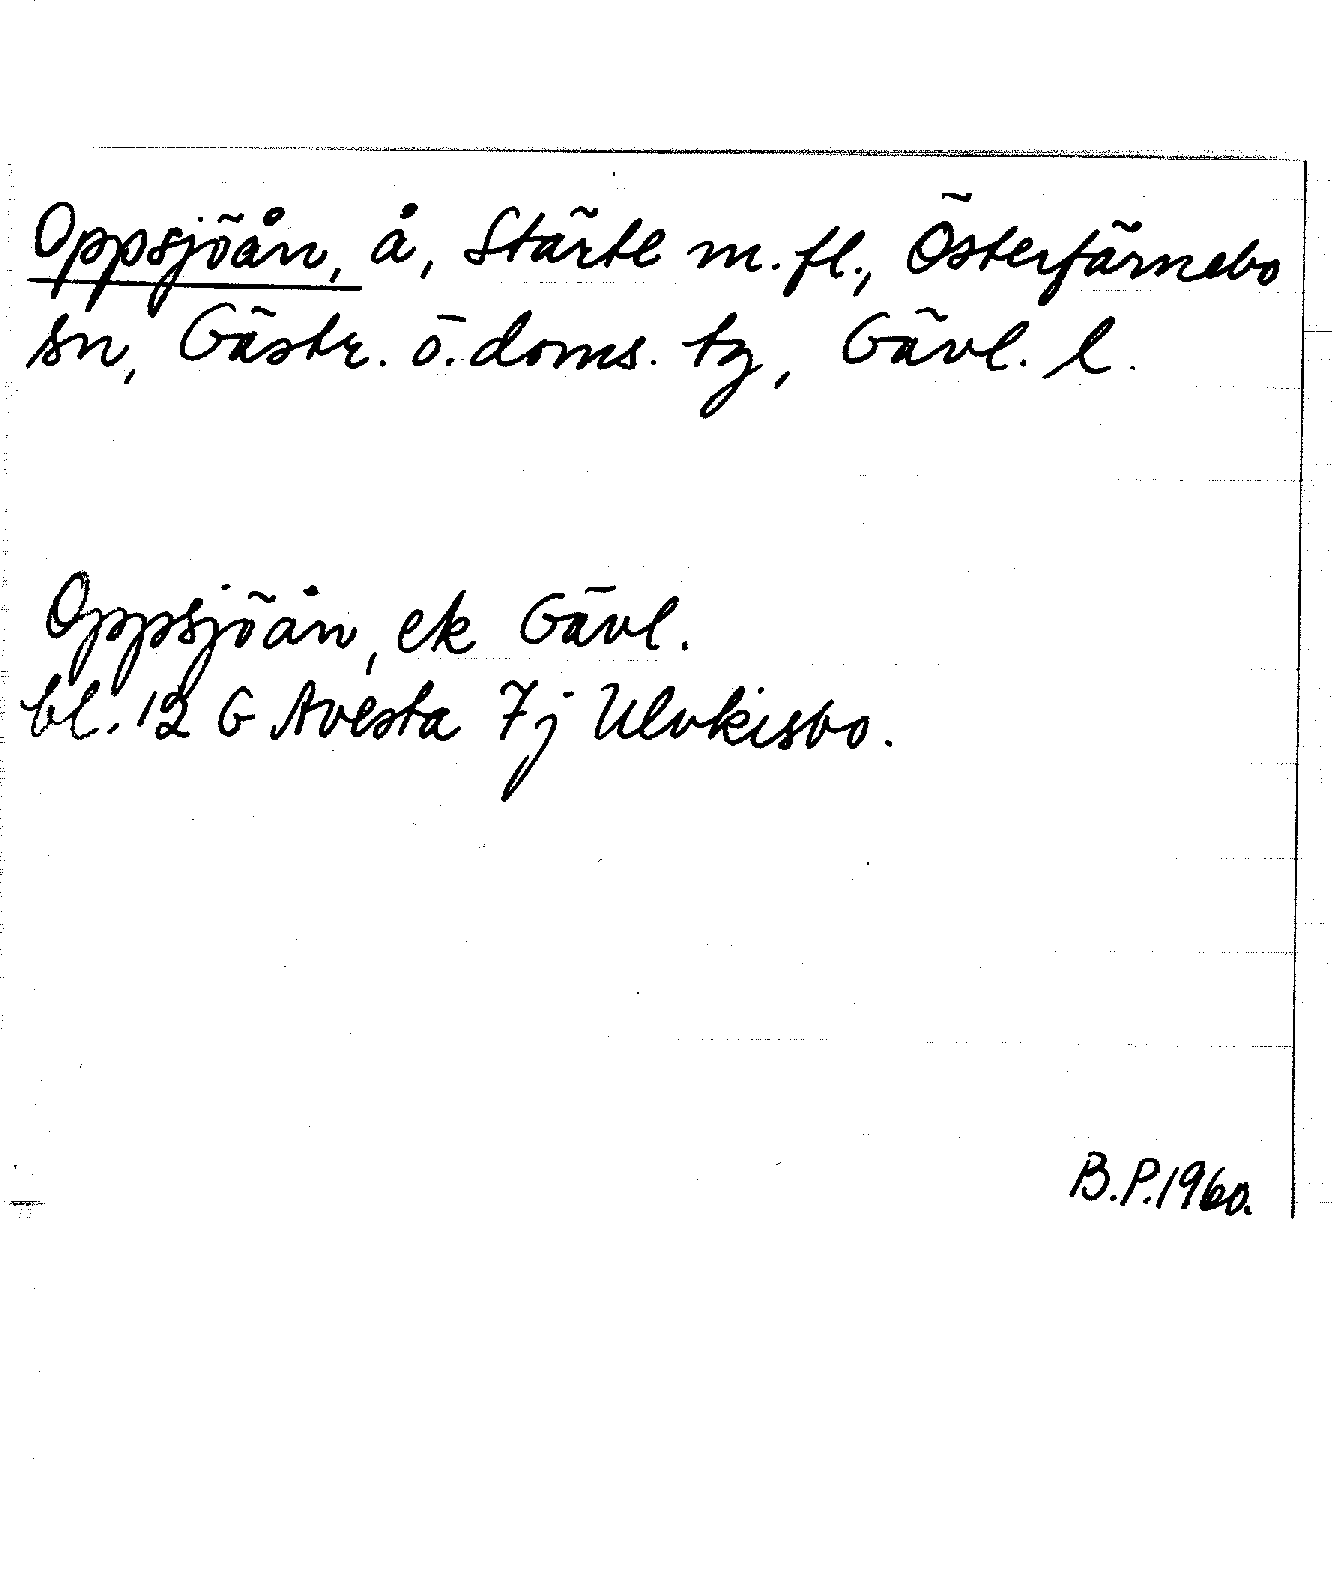 Oppsjöån, å, Stärte m.fl., Österfärnebo
sn, Gästr. ö. doms. tg, Gävl. l.
Oppsjöån, ek Gävl.
bl. 12 G Avesta 7j Ulvkisbo.
B.P.1960.